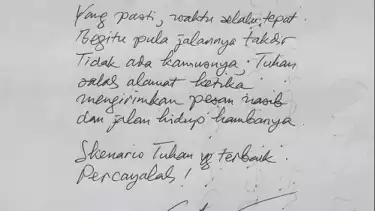 Yang pasti, waktu selalu tepat.
Begitu pula jalannya takdir
Tidak ada kamusnya, Tuhan
salah alamat ketika
mengirimkan pesan nasib
dan jalan hidup hambanya.
Skenario Tuhan yg terbaik.
Percayalah!